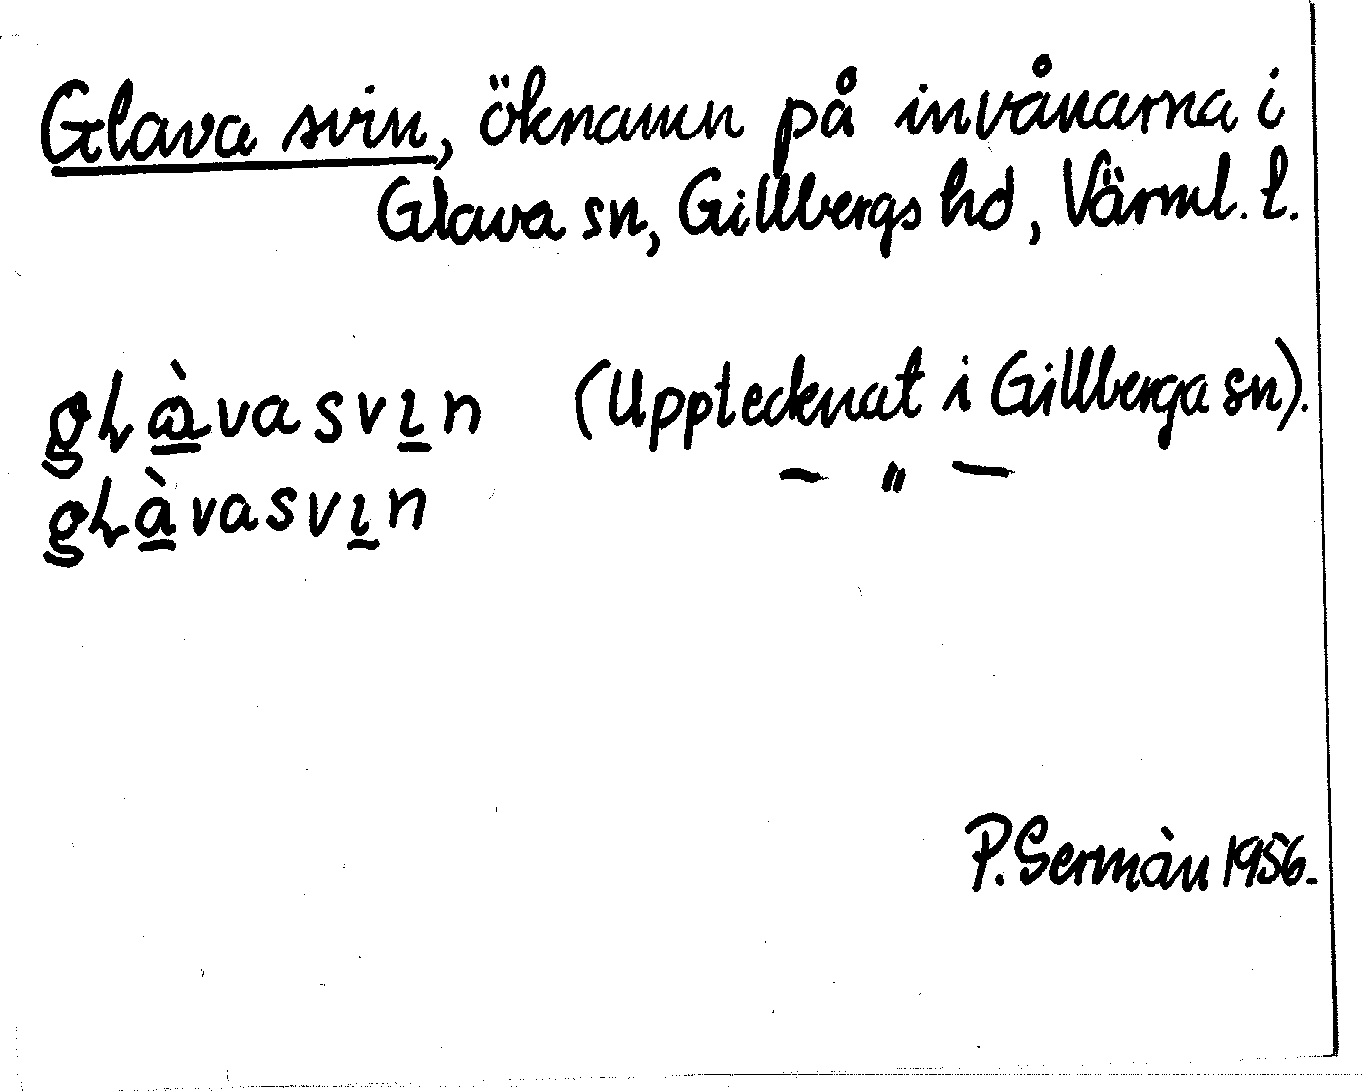 Glava svin, öknamn på invånarna i
Glava sn, Gillbergs hd, Värml. l.
gʟàvasvın (Upptecknat i Gillberga sn).
gʟàvasvın — " —
P. Sermàn 1956.